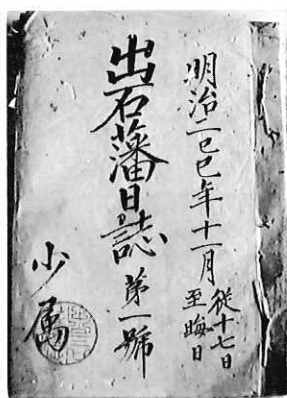 明治二己巳年十一月
従十七日
至晦日
出石藩日誌 第一號
少属